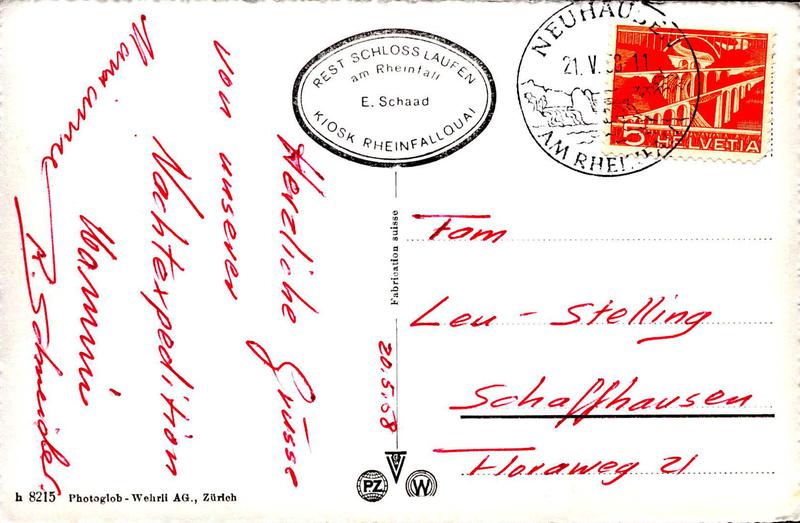 REST SCHLOSS LAUFEN
am Rheinfall
E. Schaad
KIOSK RHEINFALLQUAI
NEUHAUSEN
21. V. 11
AM RHEINF
5 HELVETIA
Herzliche Grüsse
von unserer
Nachtexpedition
Marianne
R. Schneider
20.5.68
Fabrication suisse
Fam
Leu - Stelling
Schaffhausen
Floraweg 21
PZ
W
h 8215 Photoglob - Wehrli AG., Zürich